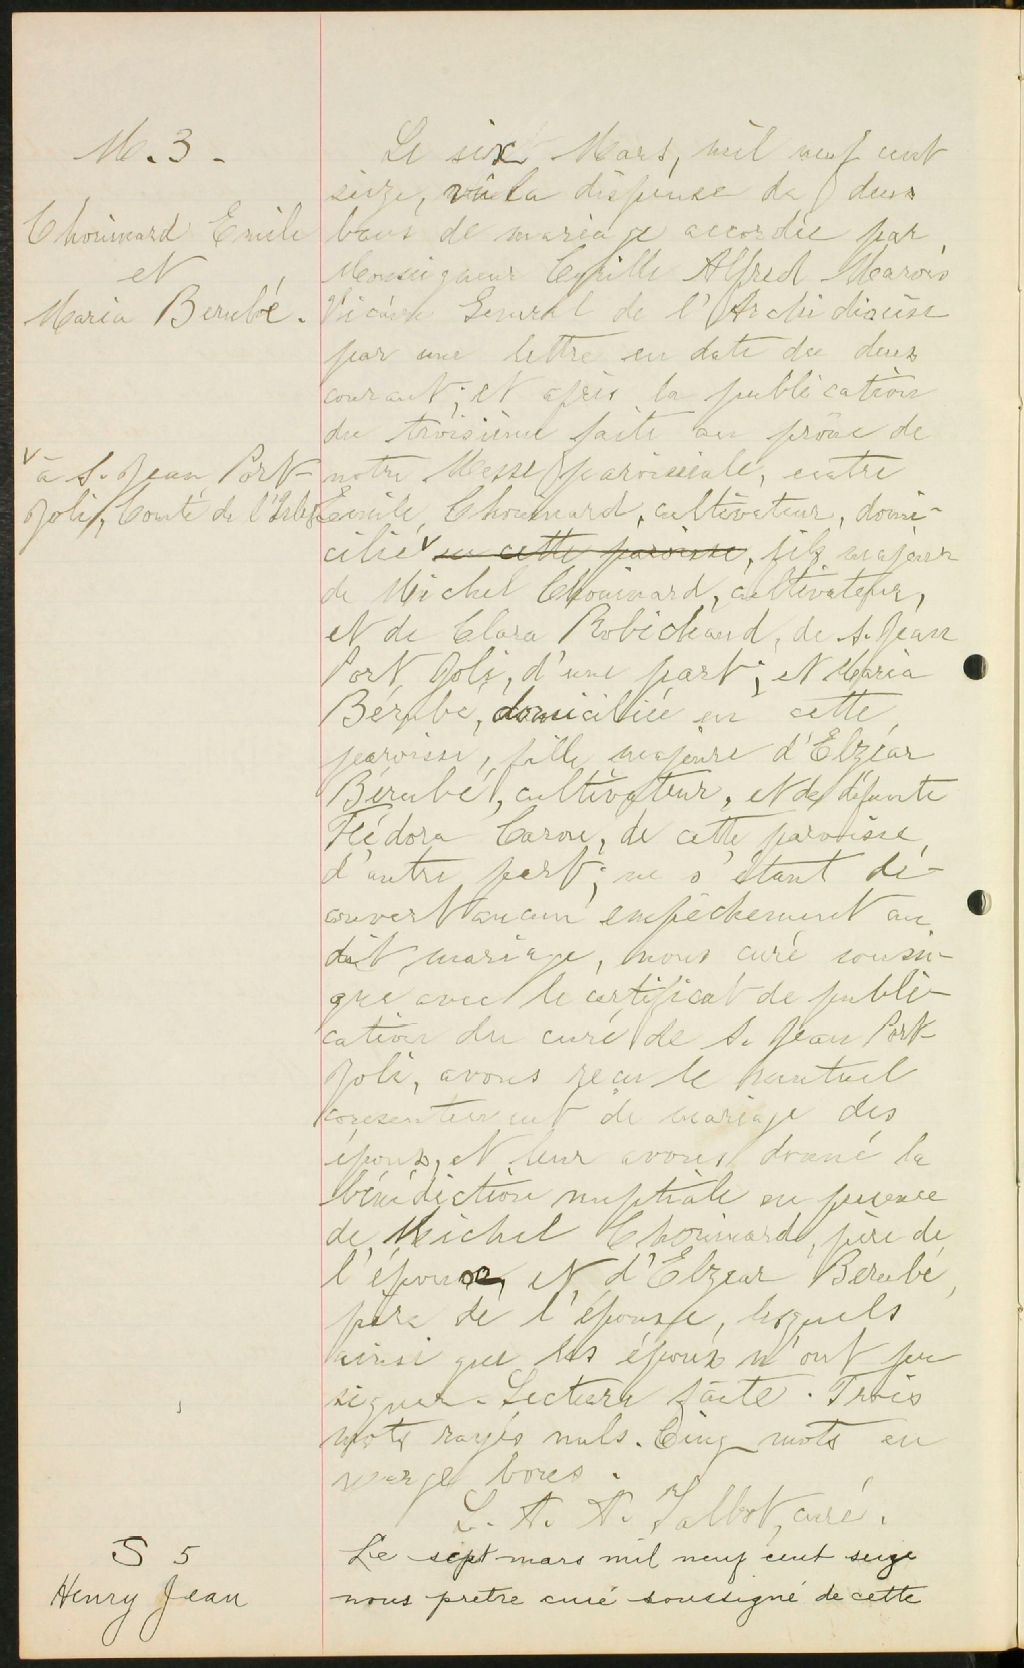 M. 3 -
Chouinard Emile
et
Maria Berubé.
Le six Mars, mil neuf cent
seize, vu la dispense de deux
bans de mariage accordée par
Monseigneur Cyrille Alfred Marois
Vicaire General de l'Archidiocèse
par une lettre en date du deux
courant; et après la publication
du troisième faite au prône de
v à S. Jean Port-
Joli, Comté de l'Islet
notre Messe paroissiale, entre
Emile Chouinard, cultivateur, domi-
cilié v en cette paroisse, fils majeur
de Michel Chouinard, cultivateur,
et de Clara Robichaud, de S. Jean
Port Joli, d'une part; et Maria
Bérubé, domiciliée en cette
paroisse, fille majeure d'Elzéar
Bérubé, cultivateur, et de défunte
Flédora Caron, de cette paroisse
d'autre part; ne s'étant dé-
couvert aucun empêchement au
dit mariage, nous curé soussi-
gné avec le certificat de publi-
cation du curé de S. Jean Port-
Joli, avons reçu le mutuel
consentement de mariage des
époux, et leur avons donné la
bénédiction nuptiale en presence
de Michel Chouinard, père de
l'époux, et d'Elzear Berubé,
père de l'épouse, lesquels
ainsi que les époux n'ont pu
signer. Lecture faite. Trois
mots rayés nuls. Cinq mots en
marge bons.
L. A. A. Talbot, curé.
S 5
Henry Jean
Le sept mars mil neuf cent seize
nous pretre curé soussigné de cette